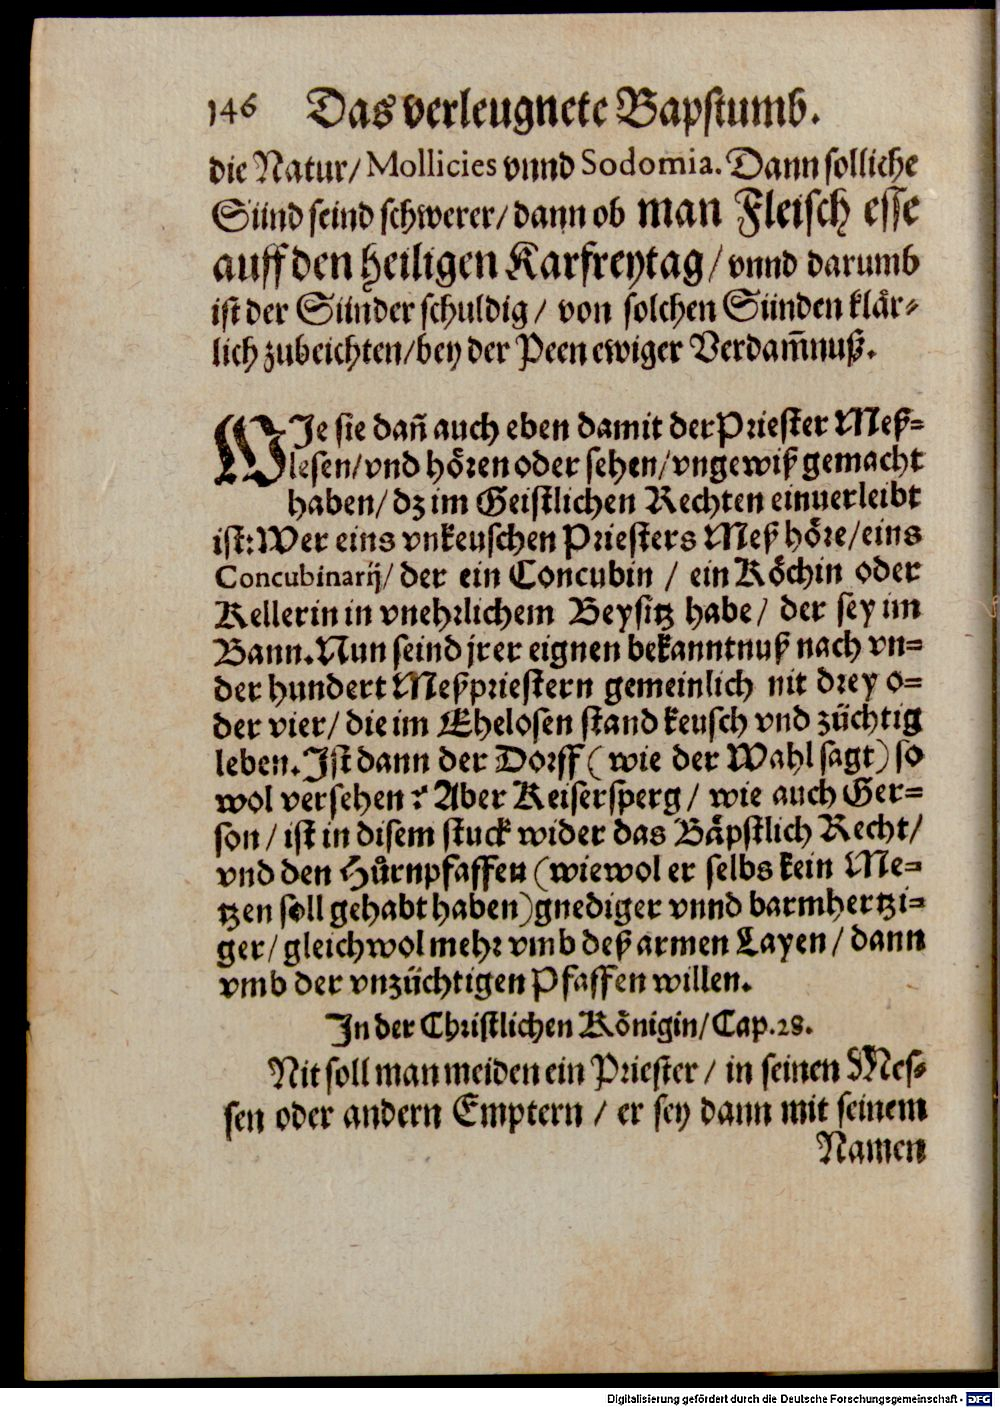 146 Das verleugnete Bapstumb.
die Natur/ Mollicies vnnd Sodomia. Dann solliche
Sünd seind schwerer/ dann ob man Fleisch esse
auff den heiligen Karfreytag/ vnnd darumb
ist der Sünder schuldig/ von solchen Sünden klär-
lich zubeichten/ bey der Peen ewiger Verdam̃nuß.
WJe sie dañ auch eben damit der Priester Meß-
lesen/ vnd hören oder sehen/ vngewiß gemacht
haben/ dz im Geistlichen Rechten einuerleibt
ist: Wer eins vnkeuschen Priesters Meß höre/ eins
Concubinarij/ der ein Concubin / ein Köchin oder
Kellerin in vnehrlichem Beysitz habe/ der sey im
Bann. Nun seind jrer eignen bekanntnuß nach vn-
der hundert Meßpriestern gemeinlich nit drey o-
der vier/ die im Ehelosen stand keusch vnd züchtig
leben. Jst dann der Dorff (wie der Wahl sagt) so
wol versehen? Aber Keisersperg/ wie auch Ger-
son/ ist in disem stuck wider das Bäpstlich Recht/
vnd den Hůrnpfaffen (wiewol er selbs kein Me-
tzen soll gehabt haben) gnediger vnnd barmhertzi-
ger/ gleichwol mehr vmb deß armen Layen/ dann
vmb der vnzüchtigen Pfaffen willen.
Jn der Christlichen Königin/ Cap. 28.
Nit soll man meiden ein Priester/ in seinen Mes-
sen oder andern Emptern / er sey dann mit seinem
Namen
Digitalisierung gefördert durch die Deutsche Forschungsgemeinschaft - DFG